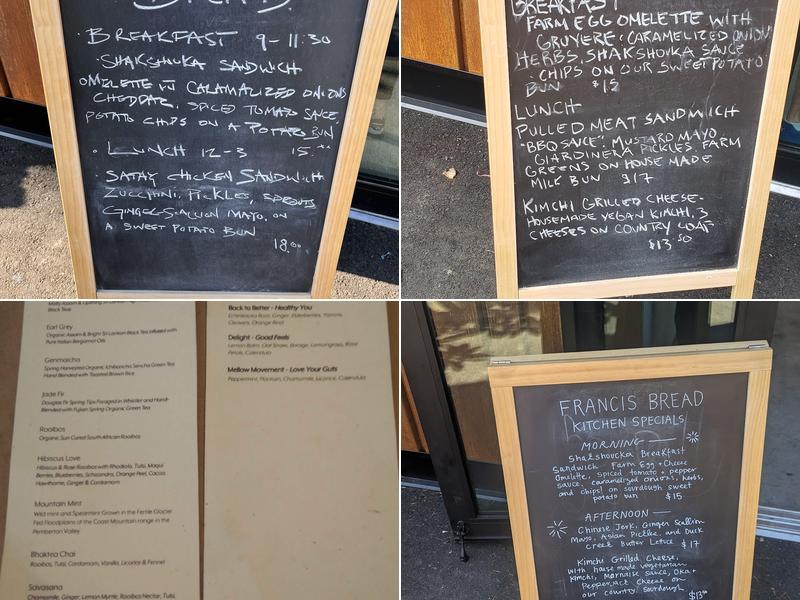 BREAD
· BREAKFAST 9-11:30
· SHAKSHUKA SANDWICH
OMELETTE W CALAMALIZED ONIONS
CHEDDAR, SPICED TOMATO SAUCE,
POTATO CHIPS ON A POTATO BUN
15.
· LUNCH 12-3
· SATAY CHICKEN SANDWICH
ZUCCHINI, PICKLES, SPROUTS
GINGER-SCALLION MAYO, ON
A SWEET POTATO BUN
18.00
BREAKFAST
FARM EGG OMELETTE WITH
GRUYERE, CARAMELIZED ONION
HERBS, SHAKSHOUKA SAUCE
CHIPS ON OUR SWEET POTATO
BUN $15
LUNCH
PULLED MEAT SANDWICH
"BBQ SAUCE", MUSTARD MAYO
GIARDINERA PICKLES, FARM
GREENS ON HOUSE MADE
MILK BUN $17
KIMCHI GRILLED CHEESE-
HOUSEMADE VEGAN KIMCHI, 3
CHEESES ON COUNTRY LOAF
$13.50
Black Teas
Earl Grey
Organic Assam & Bright Sri Lankan Black Tea infused with
Pure Italian Bergamot Oils
Genmaicha
Spring Harvested Organic Ichibancha Sencha Green Tea
Hand Blended with Toasted Brown Rice
Jade Fir
Douglas Fir Spring Tips Foraged in Whistler and Hand-
Blended with Fujian Spring Organic Green Tea
Rooibos
Organic Sun Cured South African Rooibos
Hibiscus Love
Hibiscus & Rose Rooibos with Rhodiola, Tulsi, Maqui
Berries, Blueberries, Schisandra, Orange Peel, Cacao,
Hawthorne, Ginger & Cardamom
Mountain Mint
Wild mint and Spearmint Grown in the Fertile Glacier
Fed Floodplains of the Coast Mountain range in the
Pemberton Valley
Bhaktea Chai
Rooibos, Tulsi, Cardamom, Vanilla, Licorice & Fennel
Savasana
Chamomile, Ginger, Lemon Myrtle, Rooibos Nectar, Tulsi,
Back to Better - Healthy You
Echinacea Root, Ginger, Elderberries, Yarrow,
Cleavers, Orange Rind
Delight - Good Feels
Lemon Balm, Oat Straw, Borage, Lemongrass, Rose
Petals, Calendula
Mellow Movement - Love Your Guts
Peppermint, Plantain, Chamomile, Licorice, Calendula
FRANCIS BREAD
KITCHEN SPECIALS
MORNING
Shakshoucka Breakfast
Sandwich Farm Egg + Cheese
Omelette, spiced tomato + pepper
sauce, caramelized onions, herbs,
and chips! on sourdough sweet
potato bun $15
AFTERNOON
Chinese Jerk, Ginger Scallion
Mayo, Asian Pickle, and Duck
Creek Butter Letuce $17
Kimchi Grilled Cheese,
with house made vegetarian
Kimchi, Marnaise Sauce, Oka +
Pepperjack Cheese on
our country sourdough
$13.50